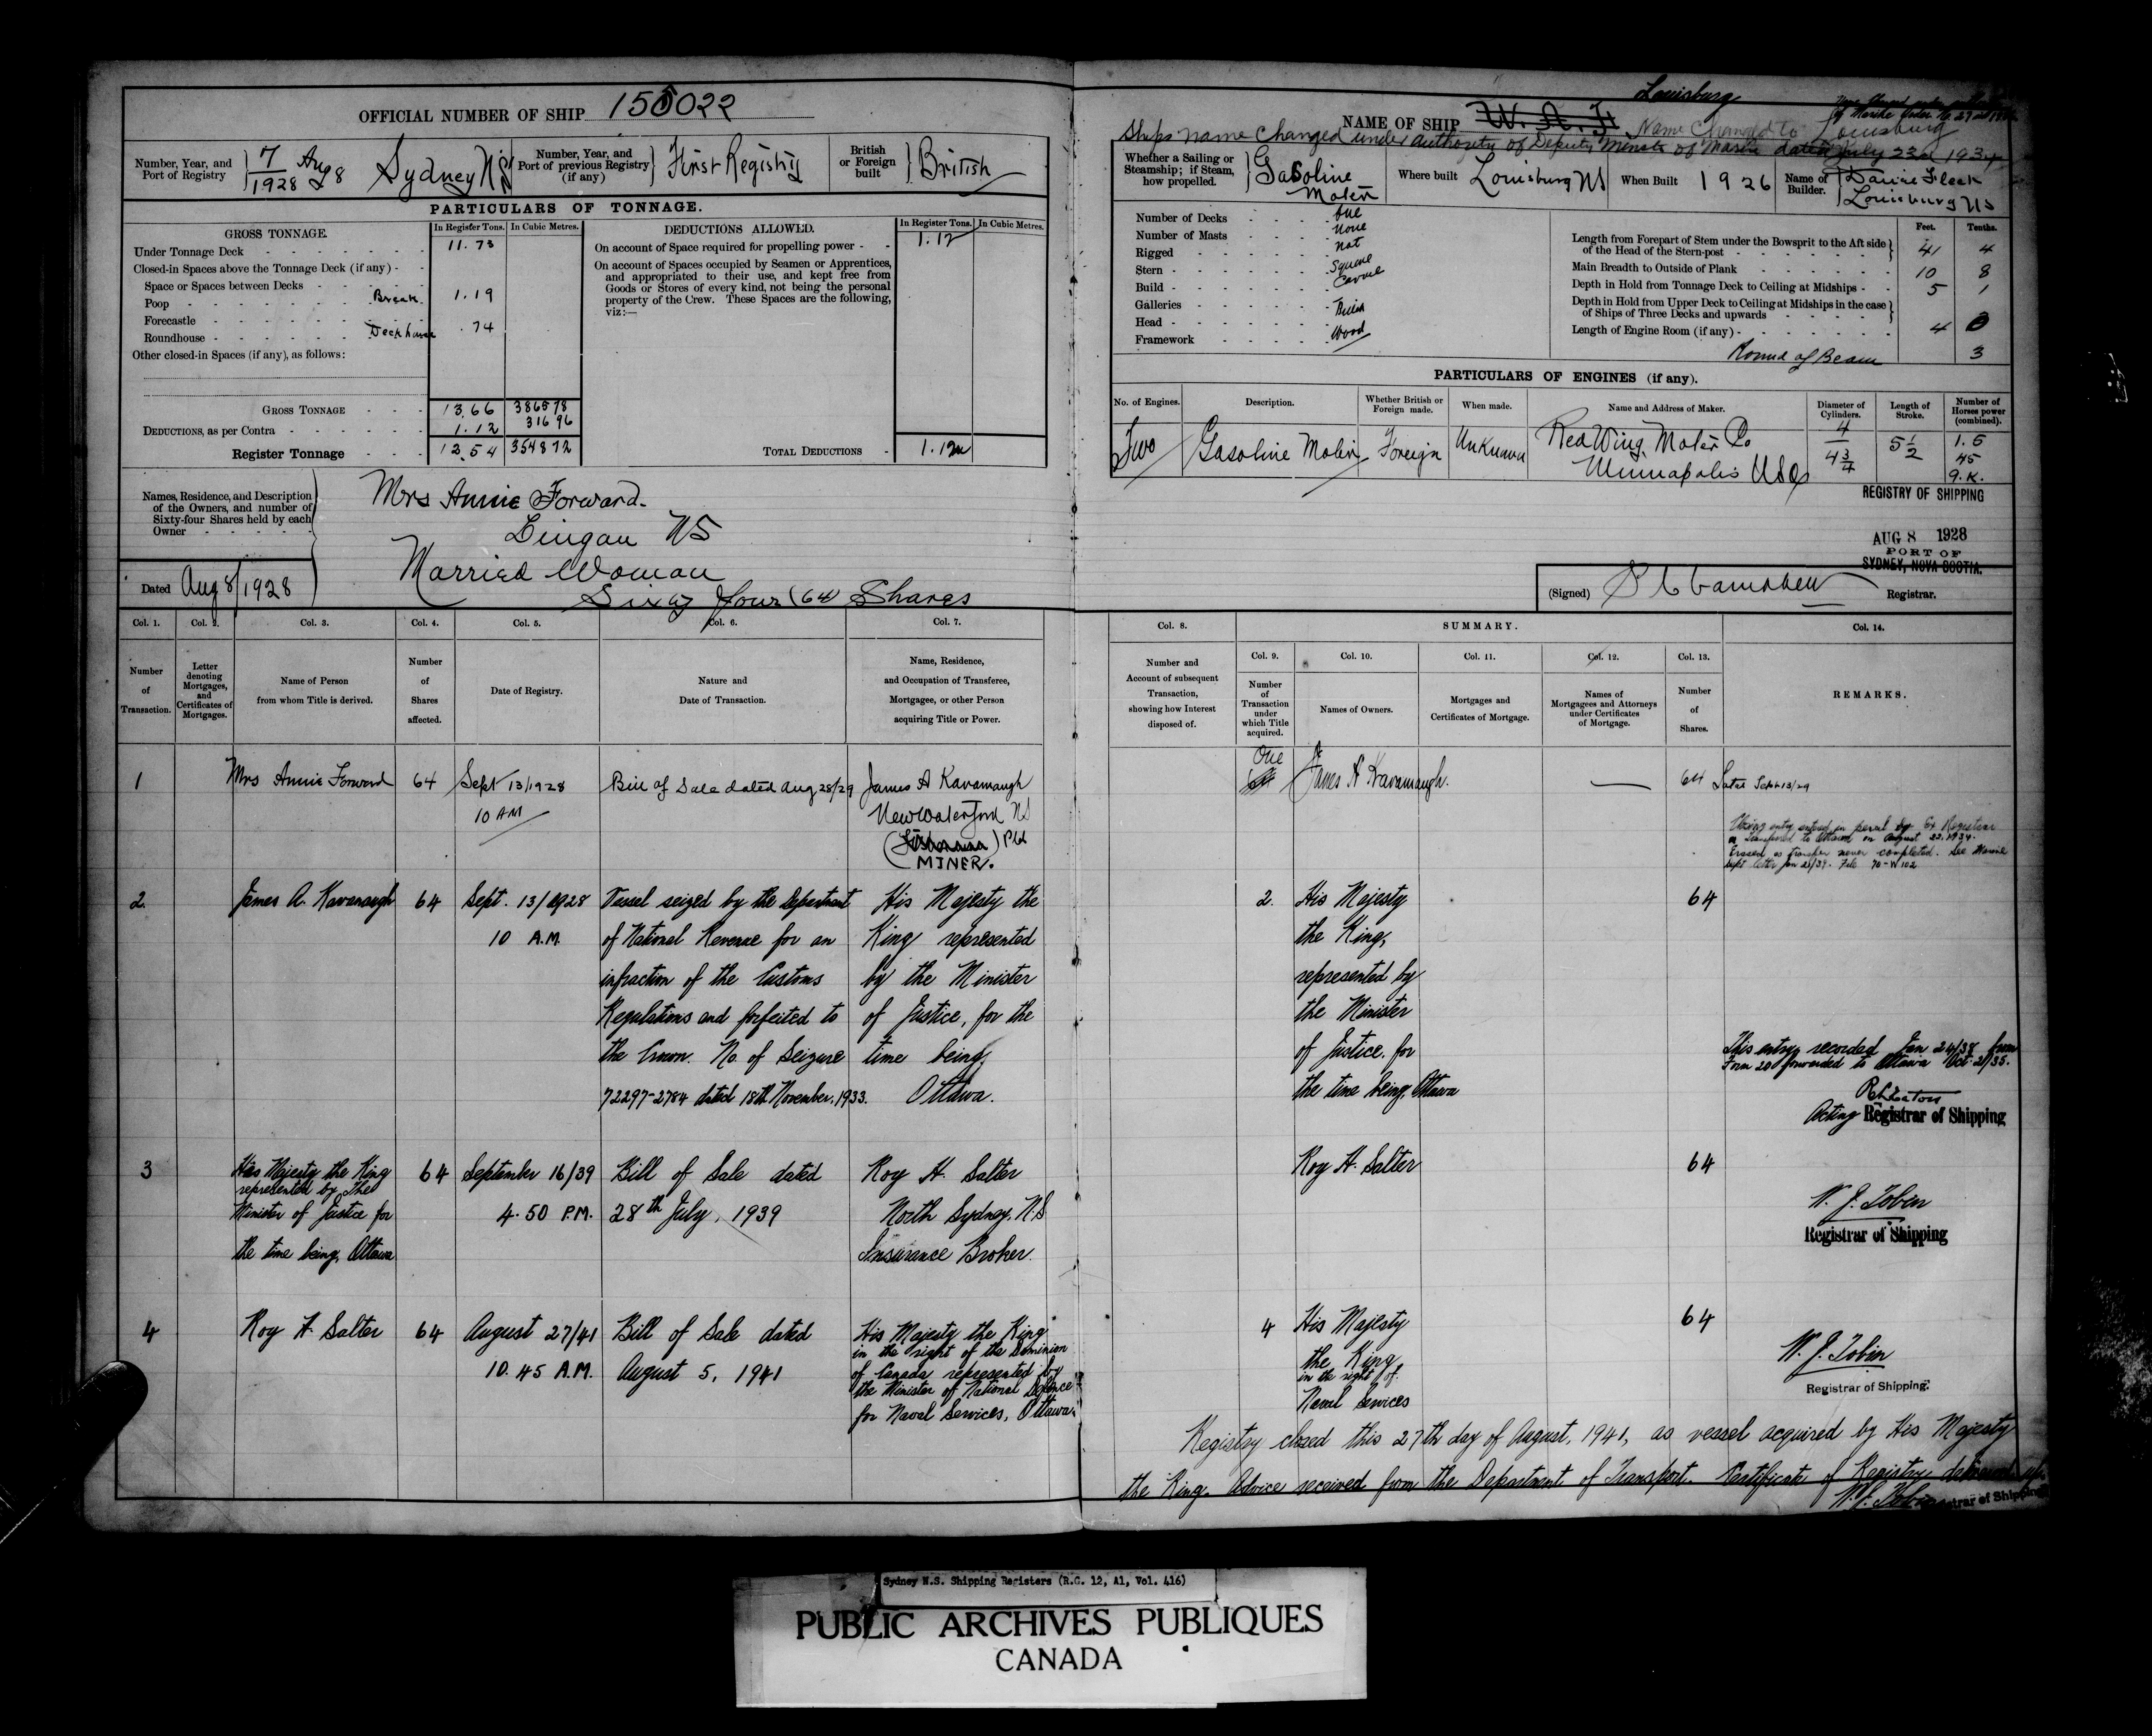 OFFICIAL NUMBER OF SHIP 155022
Number, Year, and Port of Registry
7/1928 Aug 8 Sydney NS
Number, Year, and Port of previous Registry (if any)
First Registry
British or Foreign built
British
PARTICULARS OF TONNAGE.
GROSS TONNAGE.
In Register Tons.
In Cubic Metres.
Under Tonnage Deck 11.73
Closed-in Spaces above the Tonnage Deck (if any)
Space or Spaces between Decks
Poop Break 1.19
Forecastle
Roundhouse Deckhouse .74
Other closed-in Spaces (if any), as follows:
GROSS TONNAGE 13.66 386578
DEDUCTIONS, as per Contra 1.12 3196
Register Tonnage 12.54 354872
DEDUCTIONS ALLOWED.
In Register Tons.
In Cubic Metres.
On account of Space required for propelling power 1.12
On account of Spaces occupied by Seamen or Apprentices,
and appropriated to their use, and kept free from
Goods or Stores of every kind, not being the personal
property of the Crew. These Spaces are the following,
viz:—
TOTAL DEDUCTIONS 1.12
Names, Residence, and Description
of the Owners, and number of
Sixty-four Shares held by each
Owner
Mrs Annie Forward.
Lingan NS
Married Woman
Sixty four (64) Shares
Dated Aug 8/1928
Louisburg
NAME OF SHIP W. A. F. Name Changed to Louisburg
Ships name changed under authority of Deputy Minister of Marine dated July 23rd 1934
Whether a Sailing or Steamship; if Steam, how propelled.
Gasoline Motor
Where built Louisburg NS
When Built 1926
Name of Builder. Louisburg NS
Number of Decks One
Number of Masts None
Rigged Not
Stern Square
Build Carvel
Galleries
Head
Framework Wood
Feet. Tenths.
Length from Forepart of Stem under the Bowsprit to the Aft side
of the Head of the Stern-post 41 4
Main Breadth to Outside of Plank 10 8
Depth in Hold from Tonnage Deck to Ceiling at Midships 5 1
Depth in Hold from Upper Deck to Ceiling at Midships in the case
of Ships of Three Decks and upwards
Length of Engine Room (if any) 4 0
Round of Beam 3
PARTICULARS OF ENGINES (if any).
No. of Engines.
Description.
Whether British or Foreign made.
When made.
Name and Address of Maker.
Diameter of Cylinders.
Length of Stroke.
Number of Horses power (combined).
Two
Gasoline Motor
Foreign
Unknown
Red Wing Motor Co
Minneapolis USA
4
4 3/4
5 1/2
1.5
45
9.K.
REGISTRY OF SHIPPING
AUG 8 1928
PORT OF
SYDNEY, NOVA SCOTIA.
(Signed) Campbell Registrar.
Col. 1. Col. 2. Col. 3. Col. 4. Col. 5. Col. 6. Col. 7.
Number of Transaction.
Letter denoting Mortgages, and Certificates of Mortgages.
Name of Person from whom Title is derived.
Number of Shares affected.
Date of Registry.
Nature and Date of Transaction.
Name, Residence, and Occupation of Transferee, Mortgagee, or other Person acquiring Title or Power.
Col. 8. SUMMARY. Col. 14.
Col. 9. Col. 10. Col. 11. Col. 12. Col. 13.
Number and Account of subsequent Transaction, showing how Interest disposed of.
Number of Transaction under which Title acquired.
Names of Owners.
Mortgages and Certificates of Mortgage.
Names of Mortgagees and Attorneys under Certificates of Mortgage.
Number of Shares.
REMARKS.
1
Mrs Annie Forward
64
Sept 13/1928
10 AM
Bill of Sale dated Aug 28/29
James A Kavanaugh
New Waterford NS
MINER.
One
James A Kavanaugh.
64
entry entered in pencil by Ex Registrar
as transferred to Ottawa on August 23, 1934.
Erased as transfer never completed. See Marine
Dept letter Jan 21/39. File 70-W102
2
James A. Kavanaugh
64
Sept. 13/1928
10 A.M.
Vessel seized by the Department
of National Revenue for an
infraction of the Customs
Regulations and forfeited to
the Crown. No. of Seizure
72297-2784 dated 18th November, 1933.
His Majesty the
King represented
by the Minister
of Justice, for the
time being,
Ottawa.
2.
His Majesty
the King,
represented by
the Minister
of Justice, for
the time being, Ottawa
64
This entry recorded Jan 24/38 from
Form 20 forwarded to Ottawa Oct. 21/35.
Acting Registrar of Shipping
3
His Majesty the King
represented by the
Minister of Justice for
the time being, Ottawa
64
September 16/39
4.50 P.M.
Bill of Sale dated
28th July, 1939
Roy H. Salter
North Sydney, N.S
Insurance Broker.
Roy H. Salter
64
W. J. Tobin
Registrar of Shipping
4
Roy H. Salter
64
August 27/41
10.45 A.M.
Bill of Sale dated
August 5, 1941
His Majesty the King
in the right of the Dominion
of Canada represented by
the Minister of National Defence
for Naval Services, Ottawa.
4
His Majesty
the King
in the right of.
Naval Services
64
W. J. Tobin
Registrar of Shipping.
Registry closed this 27th day of August, 1941, as vessel acquired by His Majesty
the King. Advice received from the Department of Transport. Certificate of Registry delivered up.
W. J. Tobin Registrar of Shipping
Sydney N.S. Shipping Registers (R.G. 12, A1, Vol. 416)
PUBLIC ARCHIVES PUBLIQUES
CANADA